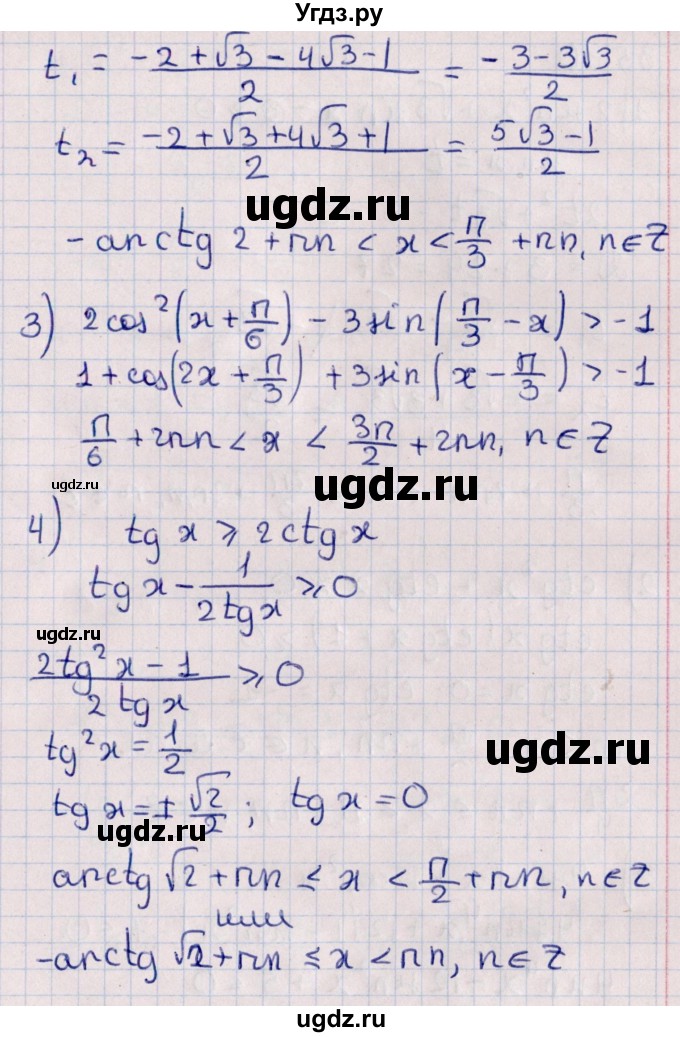 Угдз.ру
t₁ = (-2 + √3 - 4√3 - 1)/2 = (-3 - 3√3)/2
t₂ = (-2 + √3 + 4√3 + 1)/2 = (5√3 - 1)/2
ugdz.ru
-arctg 2 + πn < x < π/3 + πn, n ∈ Z
3) 2cos²(x + π/6) - 3sin(π/3 - x) > -1
1 + cos(2x + π/3) + 3sin(x - π/3) > -1
π/6 + 2πn < x < 3π/2 + 2πn, n ∈ Z
ugdz.ru
ugdz.ru
4) tg x ⩾ 2ctg x
tg x - 1/(2tg x) ⩾ 0
ugdz.ru
(2tg²x - 1)/(2 tg x) ⩾ 0
tg²x = 1/2
ugdz.ru
tg x = ± √2/2 ; tg x = 0
ugdz.ru
arctg √2 + πn ≤ x < π/2 + πn, n ∈ Z
или
-arctg √2 + πn ≤ x < πn, n ∈ Z
ugdz.ru